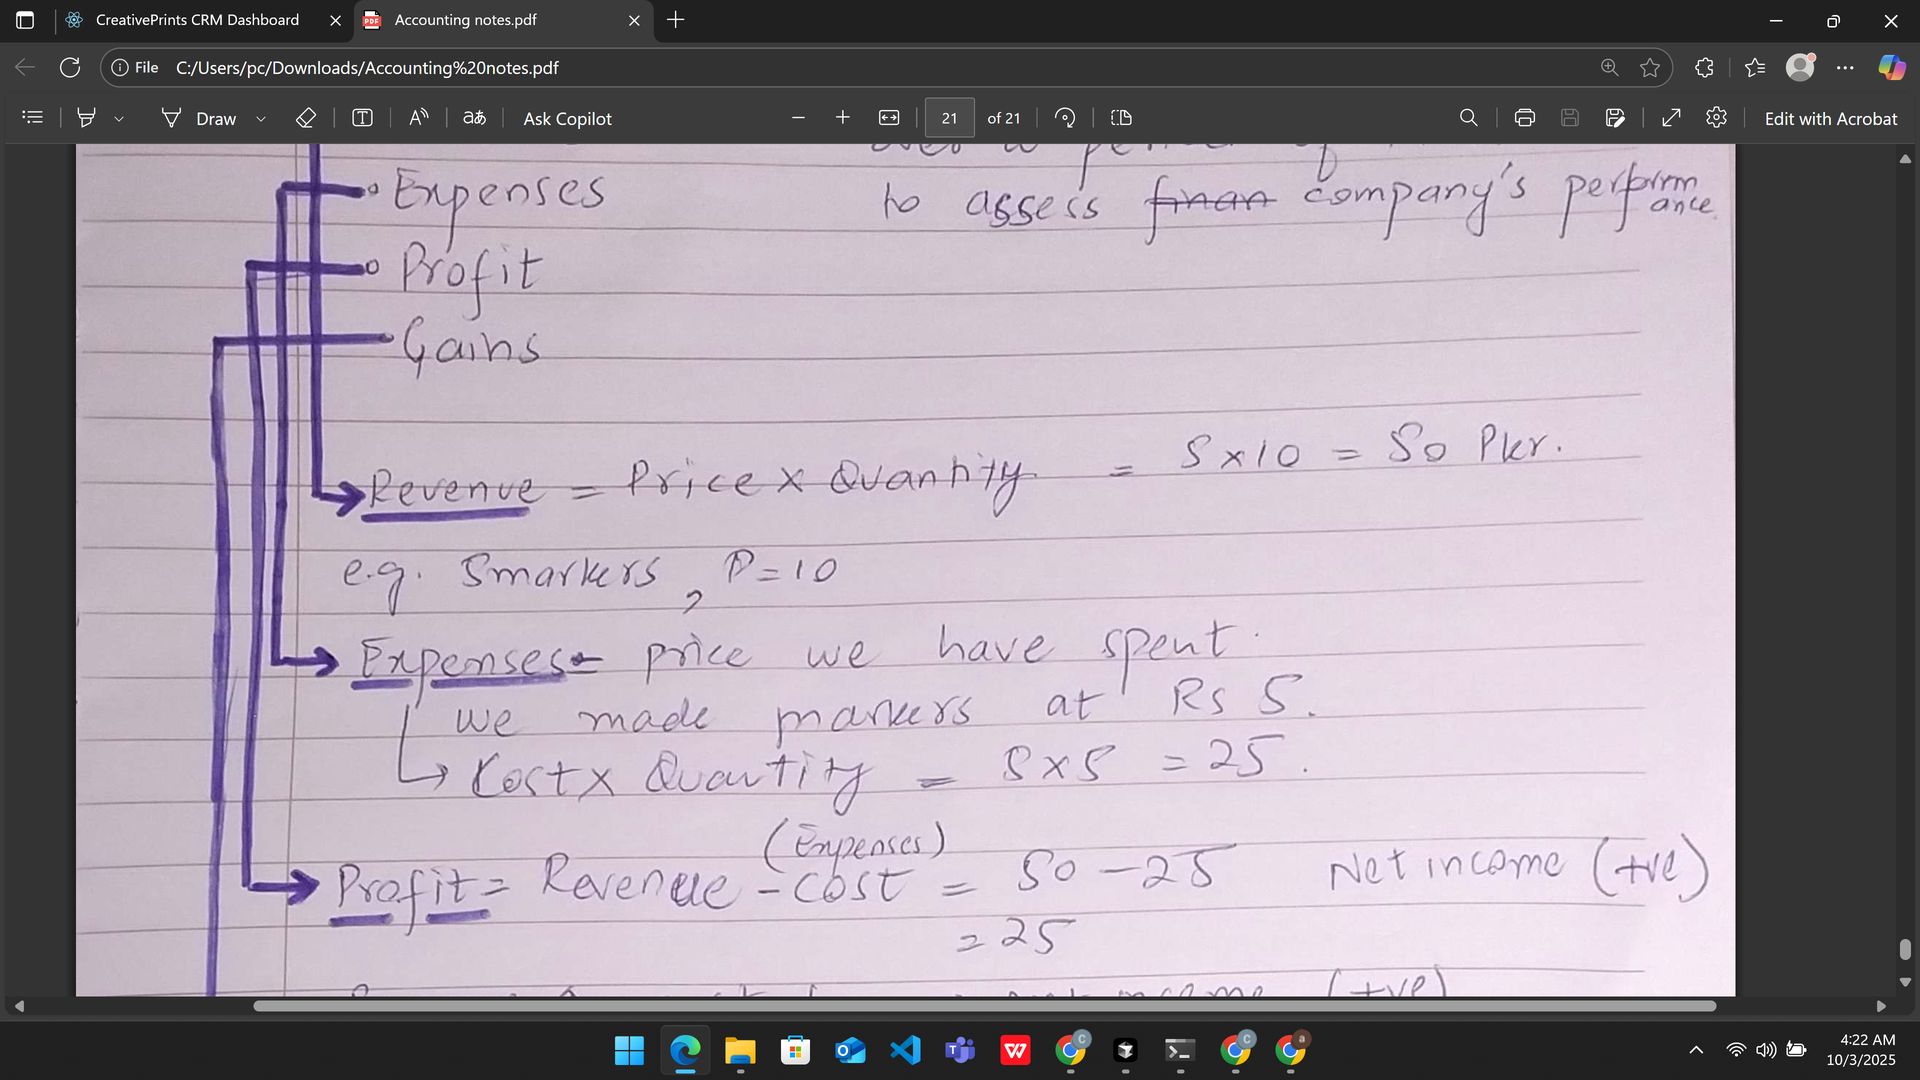 CreativePrints CRM Dashboard
Accounting notes.pdf
File C:/Users/pc/Downloads/Accounting%20notes.pdf
Draw
Ask Copilot
21 of 21
Edit with Acrobat
over a period of
Expenses
to assess finan company's performance
Profit
Gains
Revenue = Price x Quantity. = 5 x 10 = 50 Pkr.
e.g. 5markers, P=10
Expenses = price we have spent.
we made markers at Rs 5.
Cost x Quantity = 5x5 = 25.
(Expenses)
Profit = Revenue - cost = 50 - 25 Net income (+ve)
= 25
(+ve)
4:22 AM
10/3/2025